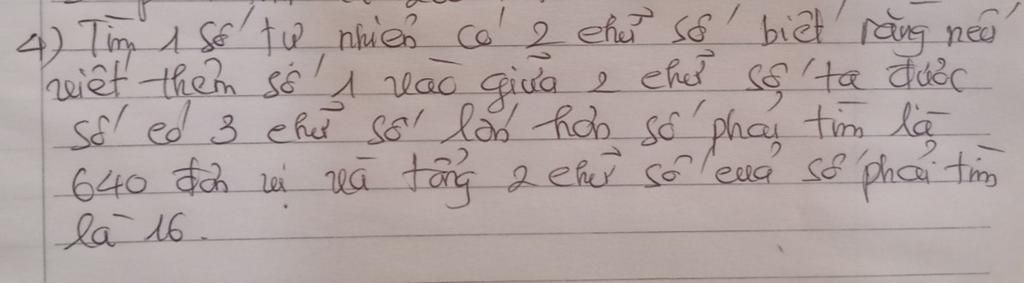 4) Tìm 1 số tự nhiên có 2 chữ số biết rằng nếu
viết thêm số 1 vào giữa 2 chữ số ta được
số có 3 chữ số lớn hơn số phải tìm là
640 đơn vị và tổng 2 chữ số của số phải tìm
là 16.